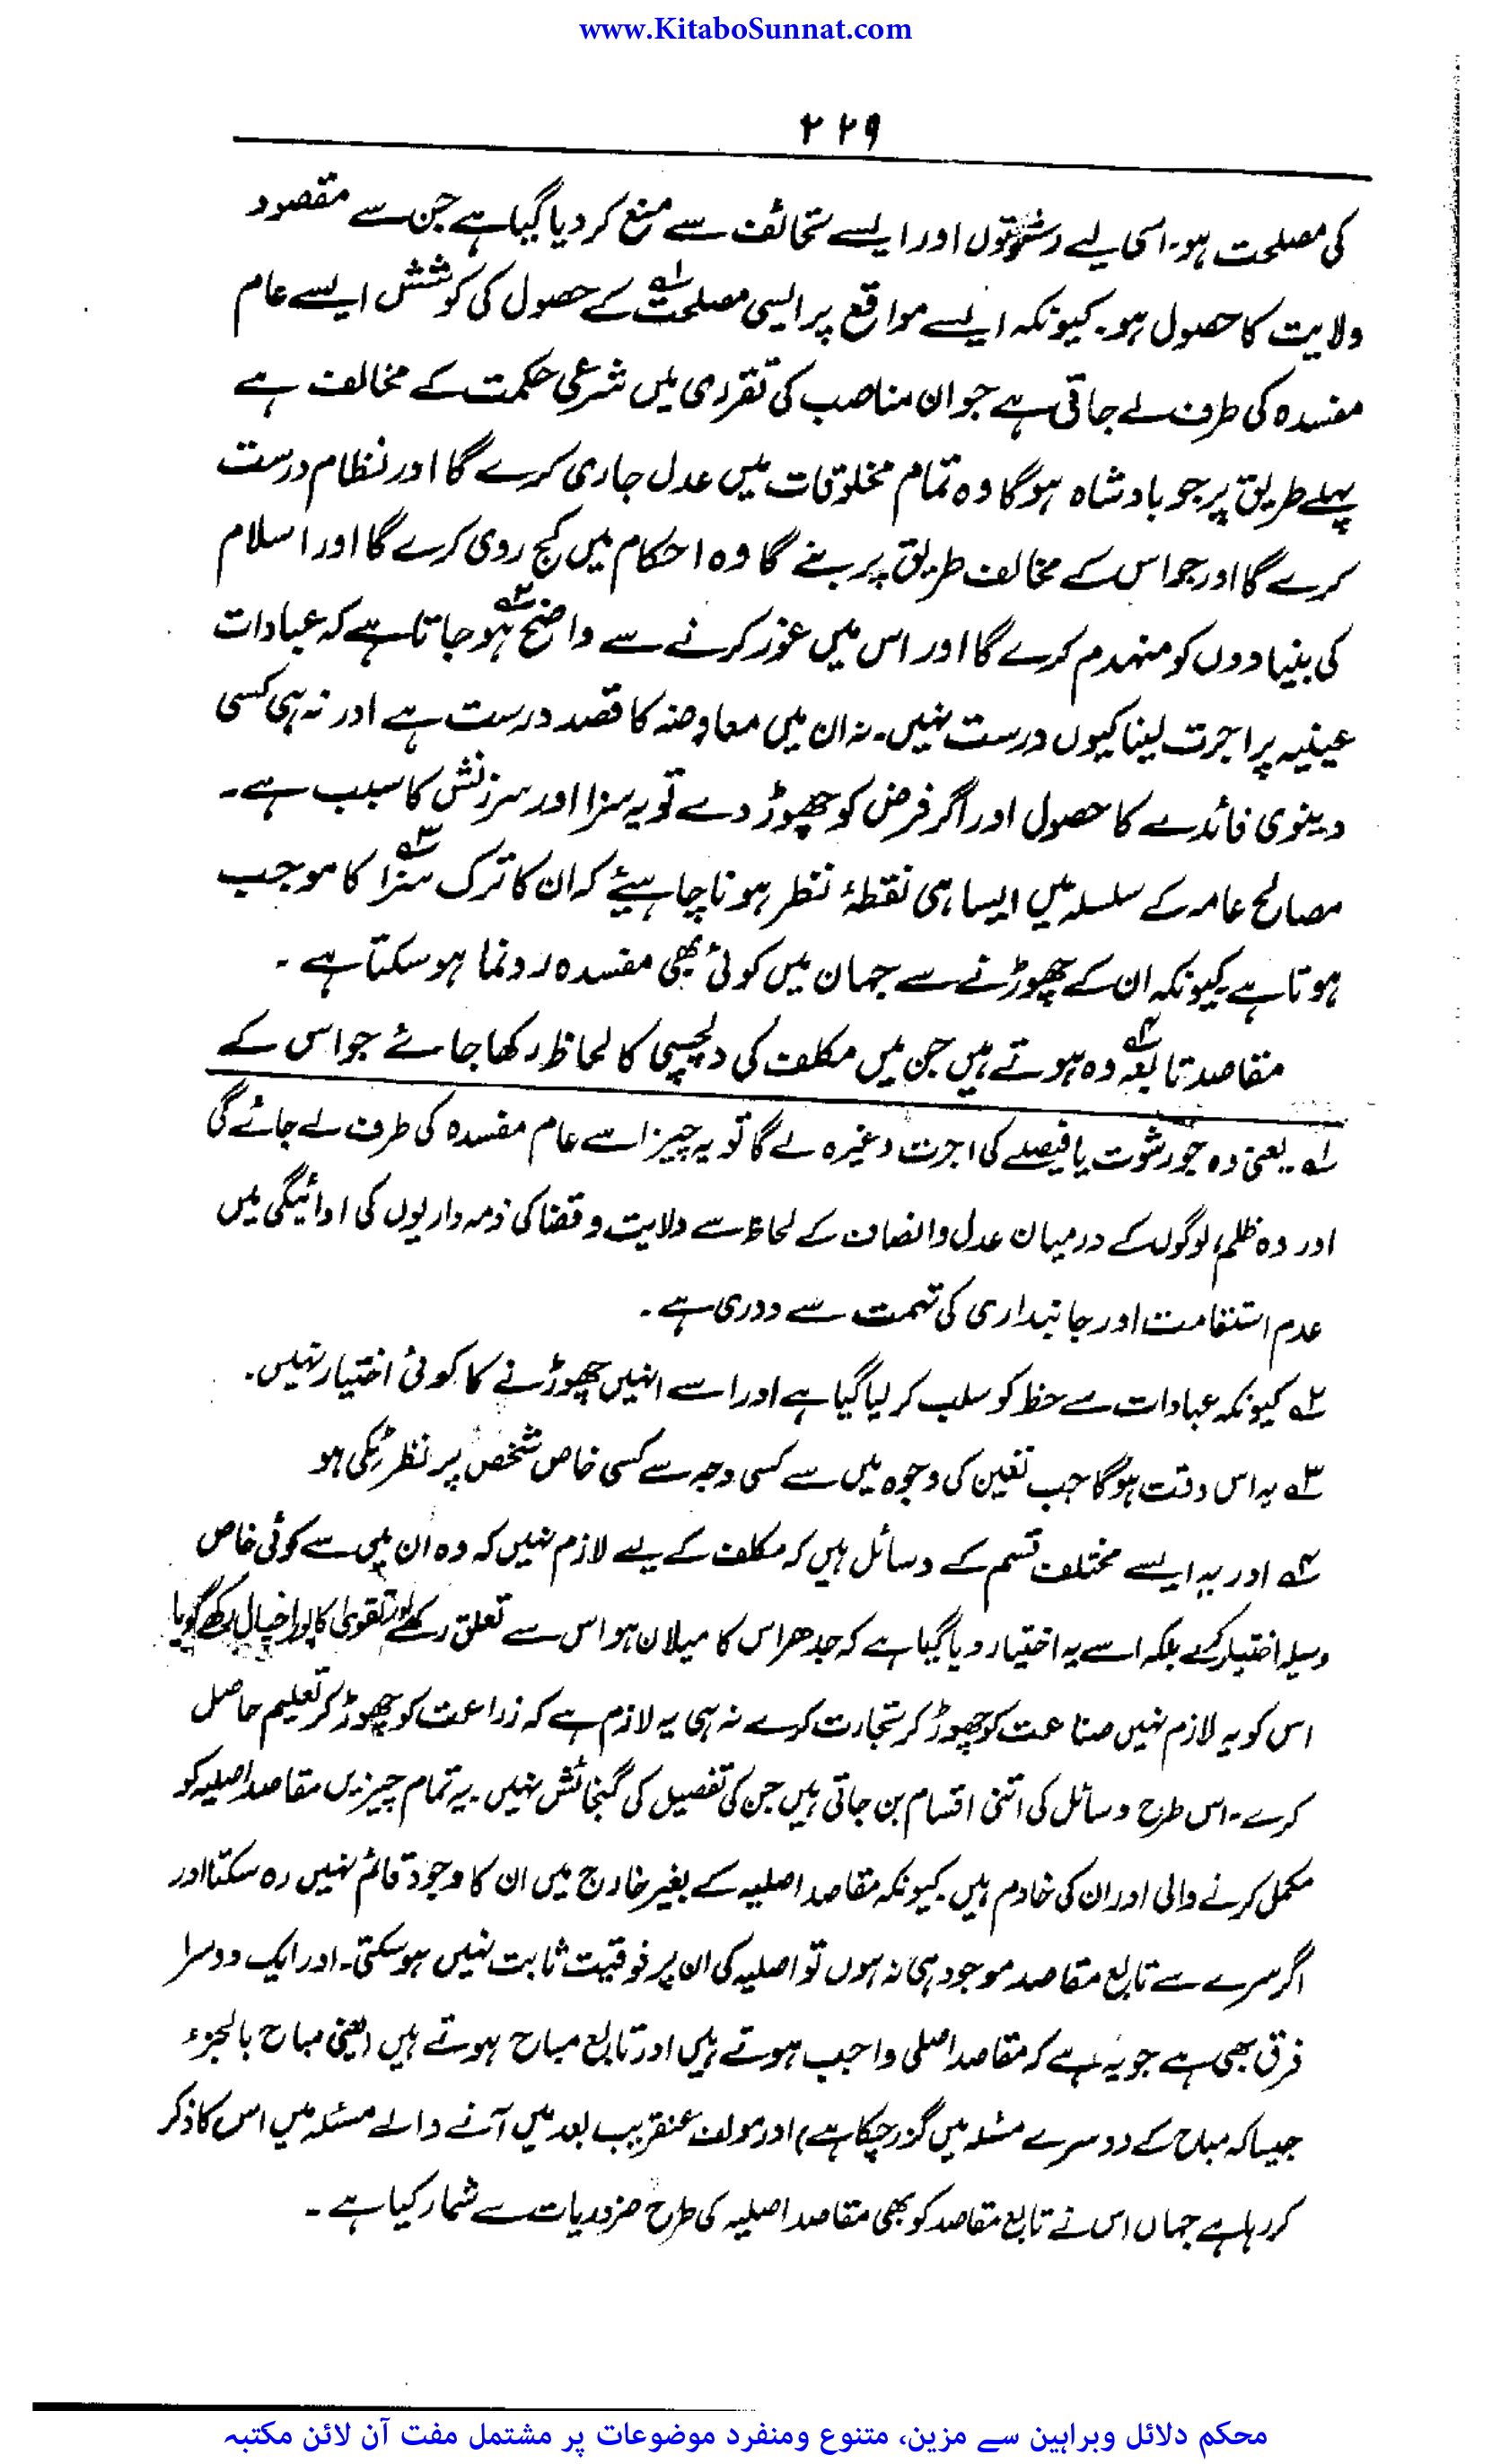 www.KitaboSunnat.com
۲۲۹
کی مصلحت ہو۔ اسی لیے رشوتوں اور ایسے تحائف سے منع کر دیا گیا ہے جن سے مقصود
ولایت کا حصول ہو۔ کیونکہ ایسے مواقع پر ایسی مصلحت۱؎ کے حصول کی کوشش ایسے عام
مفسدہ کی طرف لے جاتی ہے جو ان مناصب کی تقرری میں شرعی حکمت کے مخالف ہے
پہلے طریق پر جو بادشاہ ہوگا وہ تمام مخلوقات میں عدل جاری کرے گا اور نظام درست
کرے گا اور جو اس کے مخالف طریق پر بنے گا وہ احکام میں کج روی کرے گا اور اسلام
کی بنیادوں کو منہدم کرے گا اور اس میں غور کرنے سے واضح۲؎ ہو جاتا ہے کہ عبادات
عینیہ پر اجرت لینا کیوں درست نہیں۔ نہ ان میں معاوضہ کا قصد درست ہے اور نہ ہی کسی
دینوی فائدے کا حصول اور اگر فرض کو چھوڑ دے تو یہ سزا اور سرزنش کا سبب ہے۔
مصالح عامہ کے سلسلہ میں ایسا ہی نقطۂ نظر ہونا چاہیئے کہ ان کا ترک سزا۳؎ کا موجب
ہوتا ہے کیونکہ ان کے چھوڑنے سے جہان میں کوئی بھی مفسدہ رونما ہو سکتا ہے۔
مقاصد تابعہ۴؎ وہ ہوتے ہیں جن میں مکلف کی دلچسپی کا لحاظ رکھا جائے جو اس کے
۱؎ ۔ یعنی وہ جو رشوت یا فیصلے کی اجرت وغیرہ لے گا تو یہ چیز اسے عام مفسدہ کی طرف لے جائے گی
اور وہ ظلم، لوگوں کے درمیان عدل و انصاف کے لحاظ سے ولایت و قضا کی ذمہ داریوں کی ادائیگی میں
عدم استقامت اور جانبداری کی تہمت سے دوری ہے۔
۲؎ کیونکہ عبادات سے حظ کو سلب کر لیا گیا ہے اور اسے انہیں چھوڑنے کا کوئی اختیار نہیں۔
۳؎ یہ اس وقت ہوگا جب تعین کی وجوہ میں سے کسی وجہ سے کسی خاص شخص پر نظر ٹکی ہو
۴؎ اور یہ ایسے مختلف قسم کے وسائل ہیں کہ مکلف کے لیے لازم نہیں کہ وہ ان میں سے کوئی خاص
وسیلہ اختیار کرے بلکہ اسے یہ اختیار دیا گیا ہے کہ جدھر اس کا میلان ہو اس سے تعلق رکھے اور تقویٰ کا پورا خیال رکھے گویا
اس کو یہ لازم نہیں صناعت کو چھوڑ کر تجارت کرے نہ ہی یہ لازم ہے کہ زراعت کو چھوڑ کر تعلیم حاصل
کرے۔ اس طرح وسائل کی اتنی اقسام بن جاتی ہیں جن کی تفصیل کی گنجائش نہیں۔ یہ تمام چیزیں مقاصد اصلیہ کو
مکمل کرنے والی اور ان کی خادم ہیں کیونکہ مقاصد اصلیہ کے بغیر خارج میں ان کا وجود قائم نہیں رہ سکتا اور
اگر سرے سے تابع مقاصد موجود ہی نہ ہوں تو اصلیہ کی ان پر فوقیت ثابت نہیں ہو سکتی۔ اور ایک دوسرا
فرق بھی ہے جو یہ ہے کہ مقاصد اصلی واجب ہوتے ہیں اور تابع مباح ہوتے ہیں (یعنی مباح بالجزء
جیسا کہ مباح کے دوسرے مسئلہ میں گزر چکا ہے) اور مولف عنقریب بعد میں آنے والے مسئلہ میں اس کا ذکر
کر رہا ہے جہاں اس نے تابع مقاصد کو بھی مقاصد اصلیہ کی طرح ضروریات سے شمار کیا ہے۔
محکم دلائل وبراہین سے مزین، متنوع ومنفرد موضوعات پر مشتمل مفت آن لائن مکتبہ